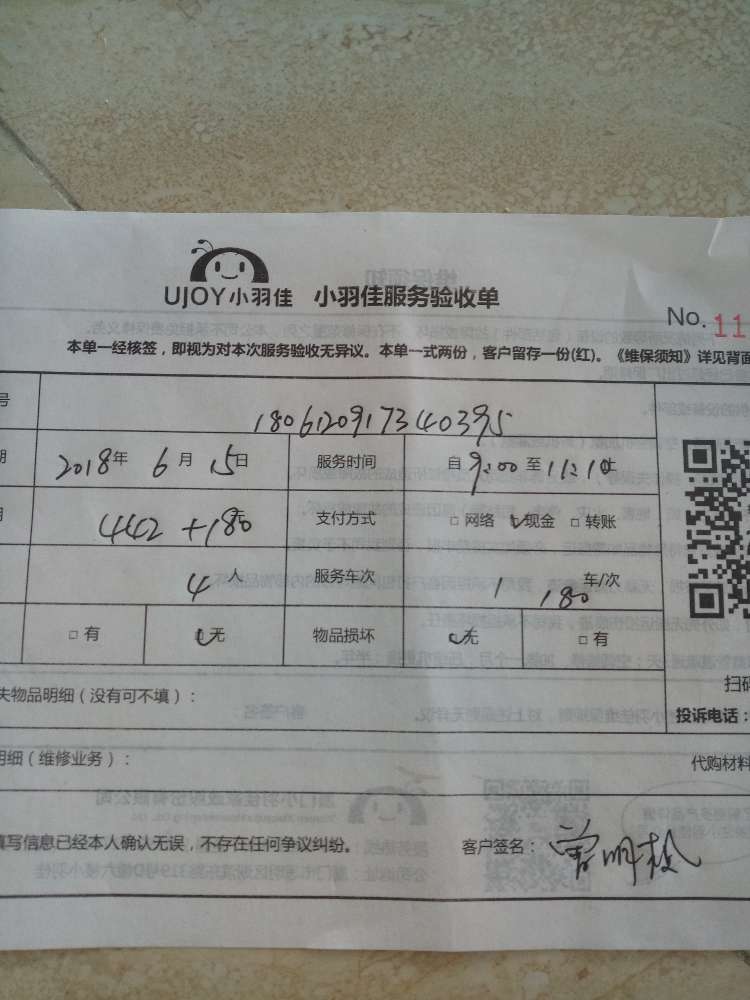 UJOY小羽佳 小羽佳服务验收单
No. 11
本单一经核签，即视为对本次服务验收无异议。本单一式两份，客户留存一份(红)。《维保须知》详见背面
号 1806120917340395
期 2018年 6月 15日 服务时间 自 9:00 至 11:10止
442 +180元 支付方式 □ 网络 ✓现金 □ 转账
4人 服务车次 1 180 车/次
□ 有 ✓无 物品损坏 ✓无 □ 有
扫码
失物品明细（没有可不填）： 投诉电话：
明细（维修业务）： 代购材料
填写信息已经本人确认无误，不存在任何争议纠纷。 客户签名：